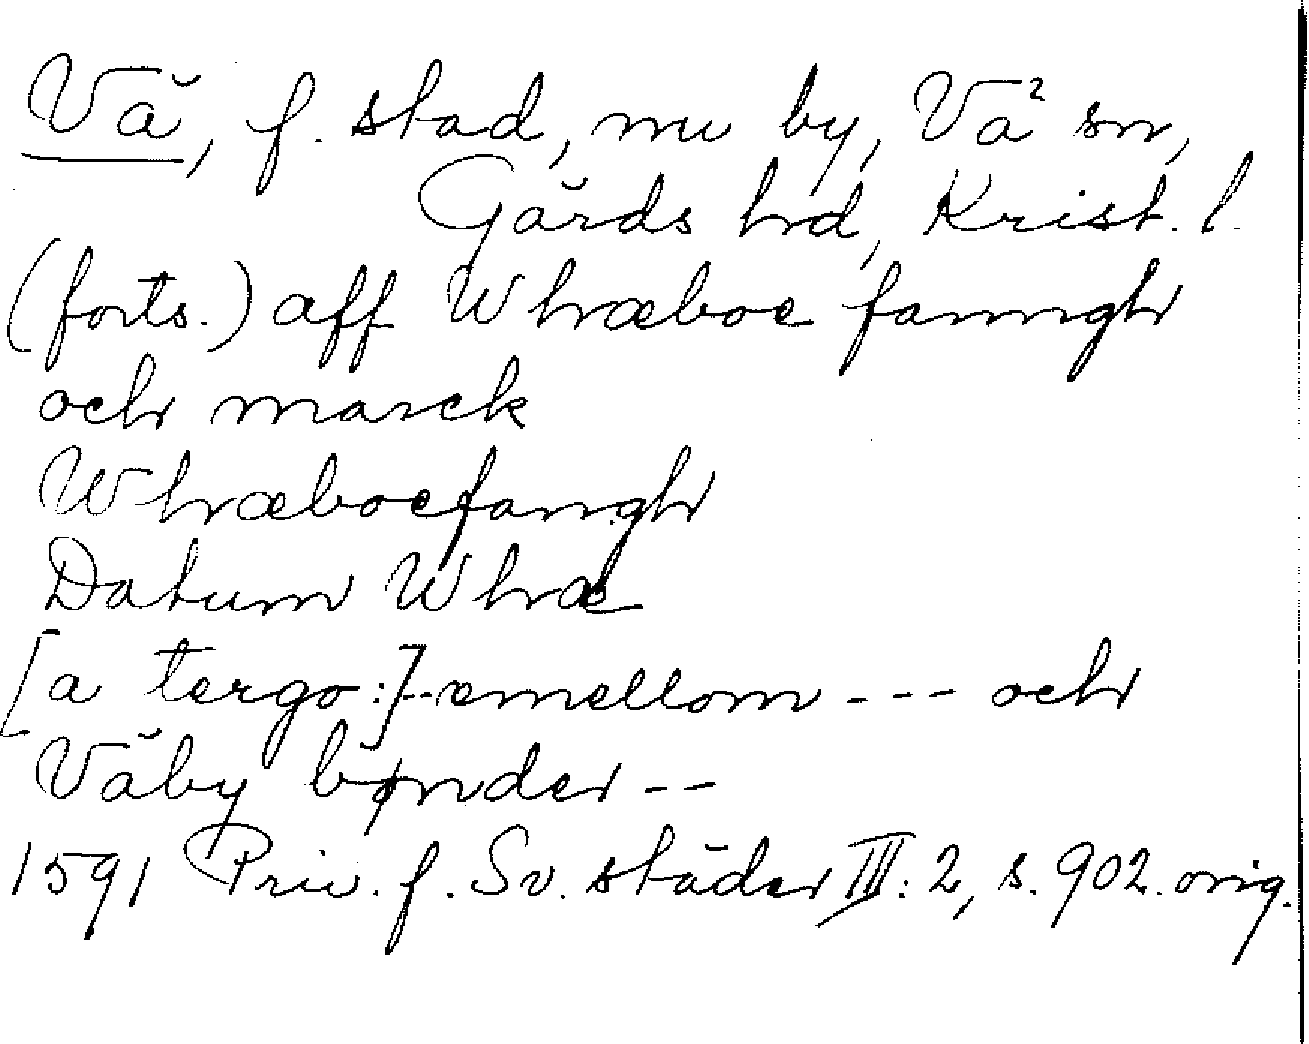 Vä, f. stad, nu by, Vä² sn,
Gärds hd, Krist. l.
(forts.) aff Whæboe fanngh
och marck
Whæboefangh
Datum Whæ
[a tergo:]--emellom --- och
Väby bønder --
1591 Priv. f. Sv. städer III:2, s. 902. orig.